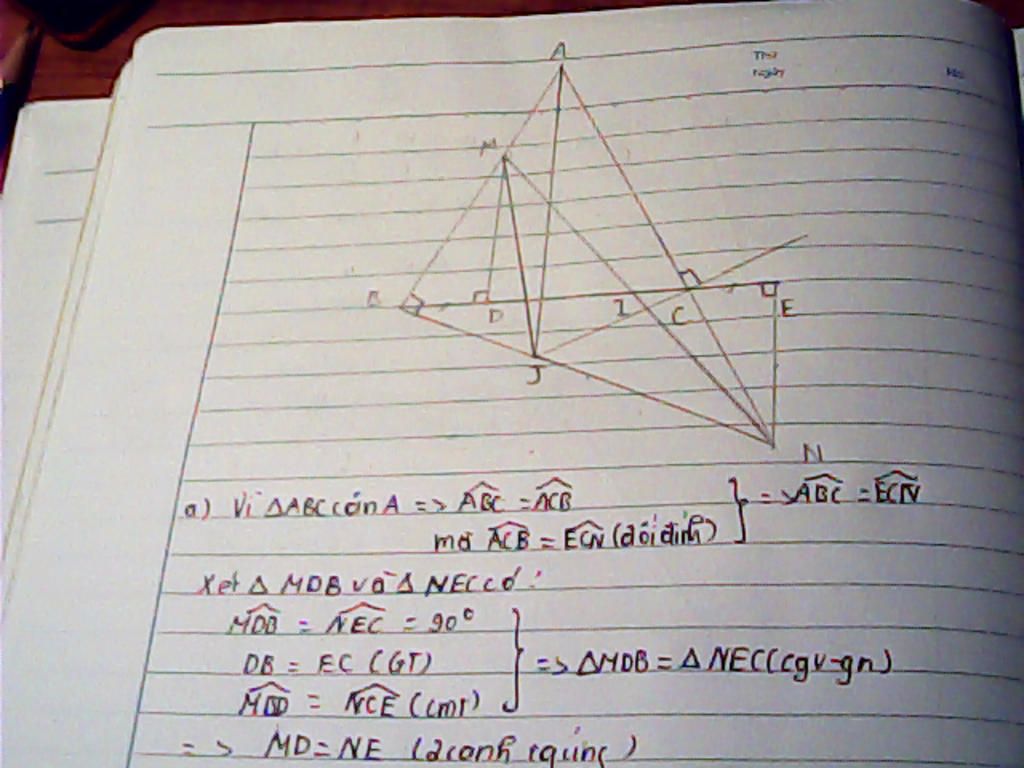 A
Thứ
Ngày
No
M
B
D
I
C
E
J
N
a) Vì ΔABC cân A => ABC = ACB
mà ACB = ECN (đối đỉnh) } => ABC = ECN
Xét Δ MDB và Δ NEC có :
MDB = NEC = 90°
DB = EC (GT) } => ΔMDB = Δ NEC (cgv-gn)
MBD = NCE (cmt)
=> MD = NE (2 cạnh tương ứng)